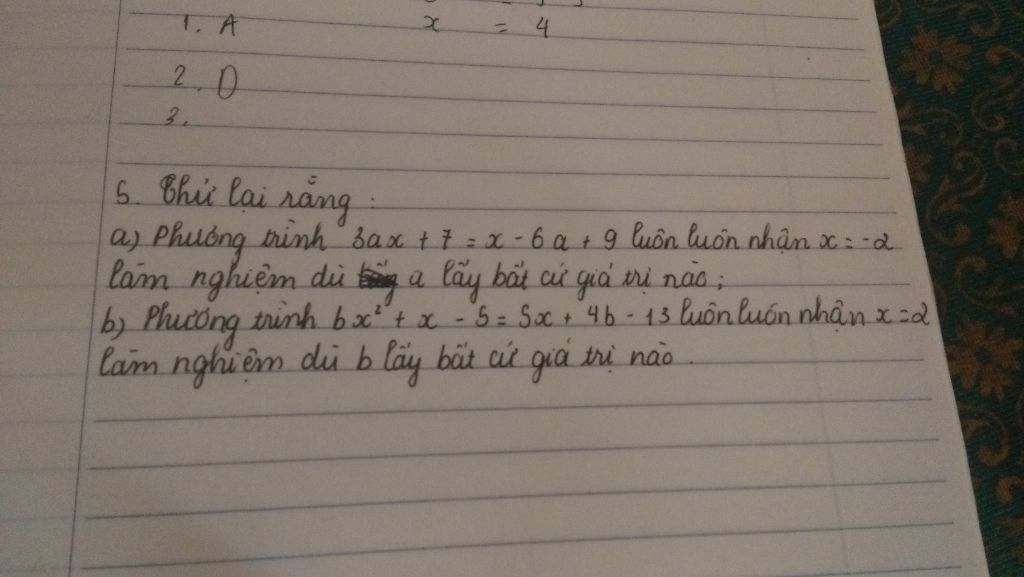 1. A
x = 4
2. D
3.
5. Thử lại rằng :
a) Phương trình 3ax + 7 = x - 6a + 9 luôn luôn nhận x = -2
làm nghiệm dù a lấy bất cứ giá trị nào ;
b) Phương trình bx² + x - 5 = 5x + 4b - 13 luôn luôn nhận x = 2
làm nghiệm dù b lấy bất cứ giá trị nào .